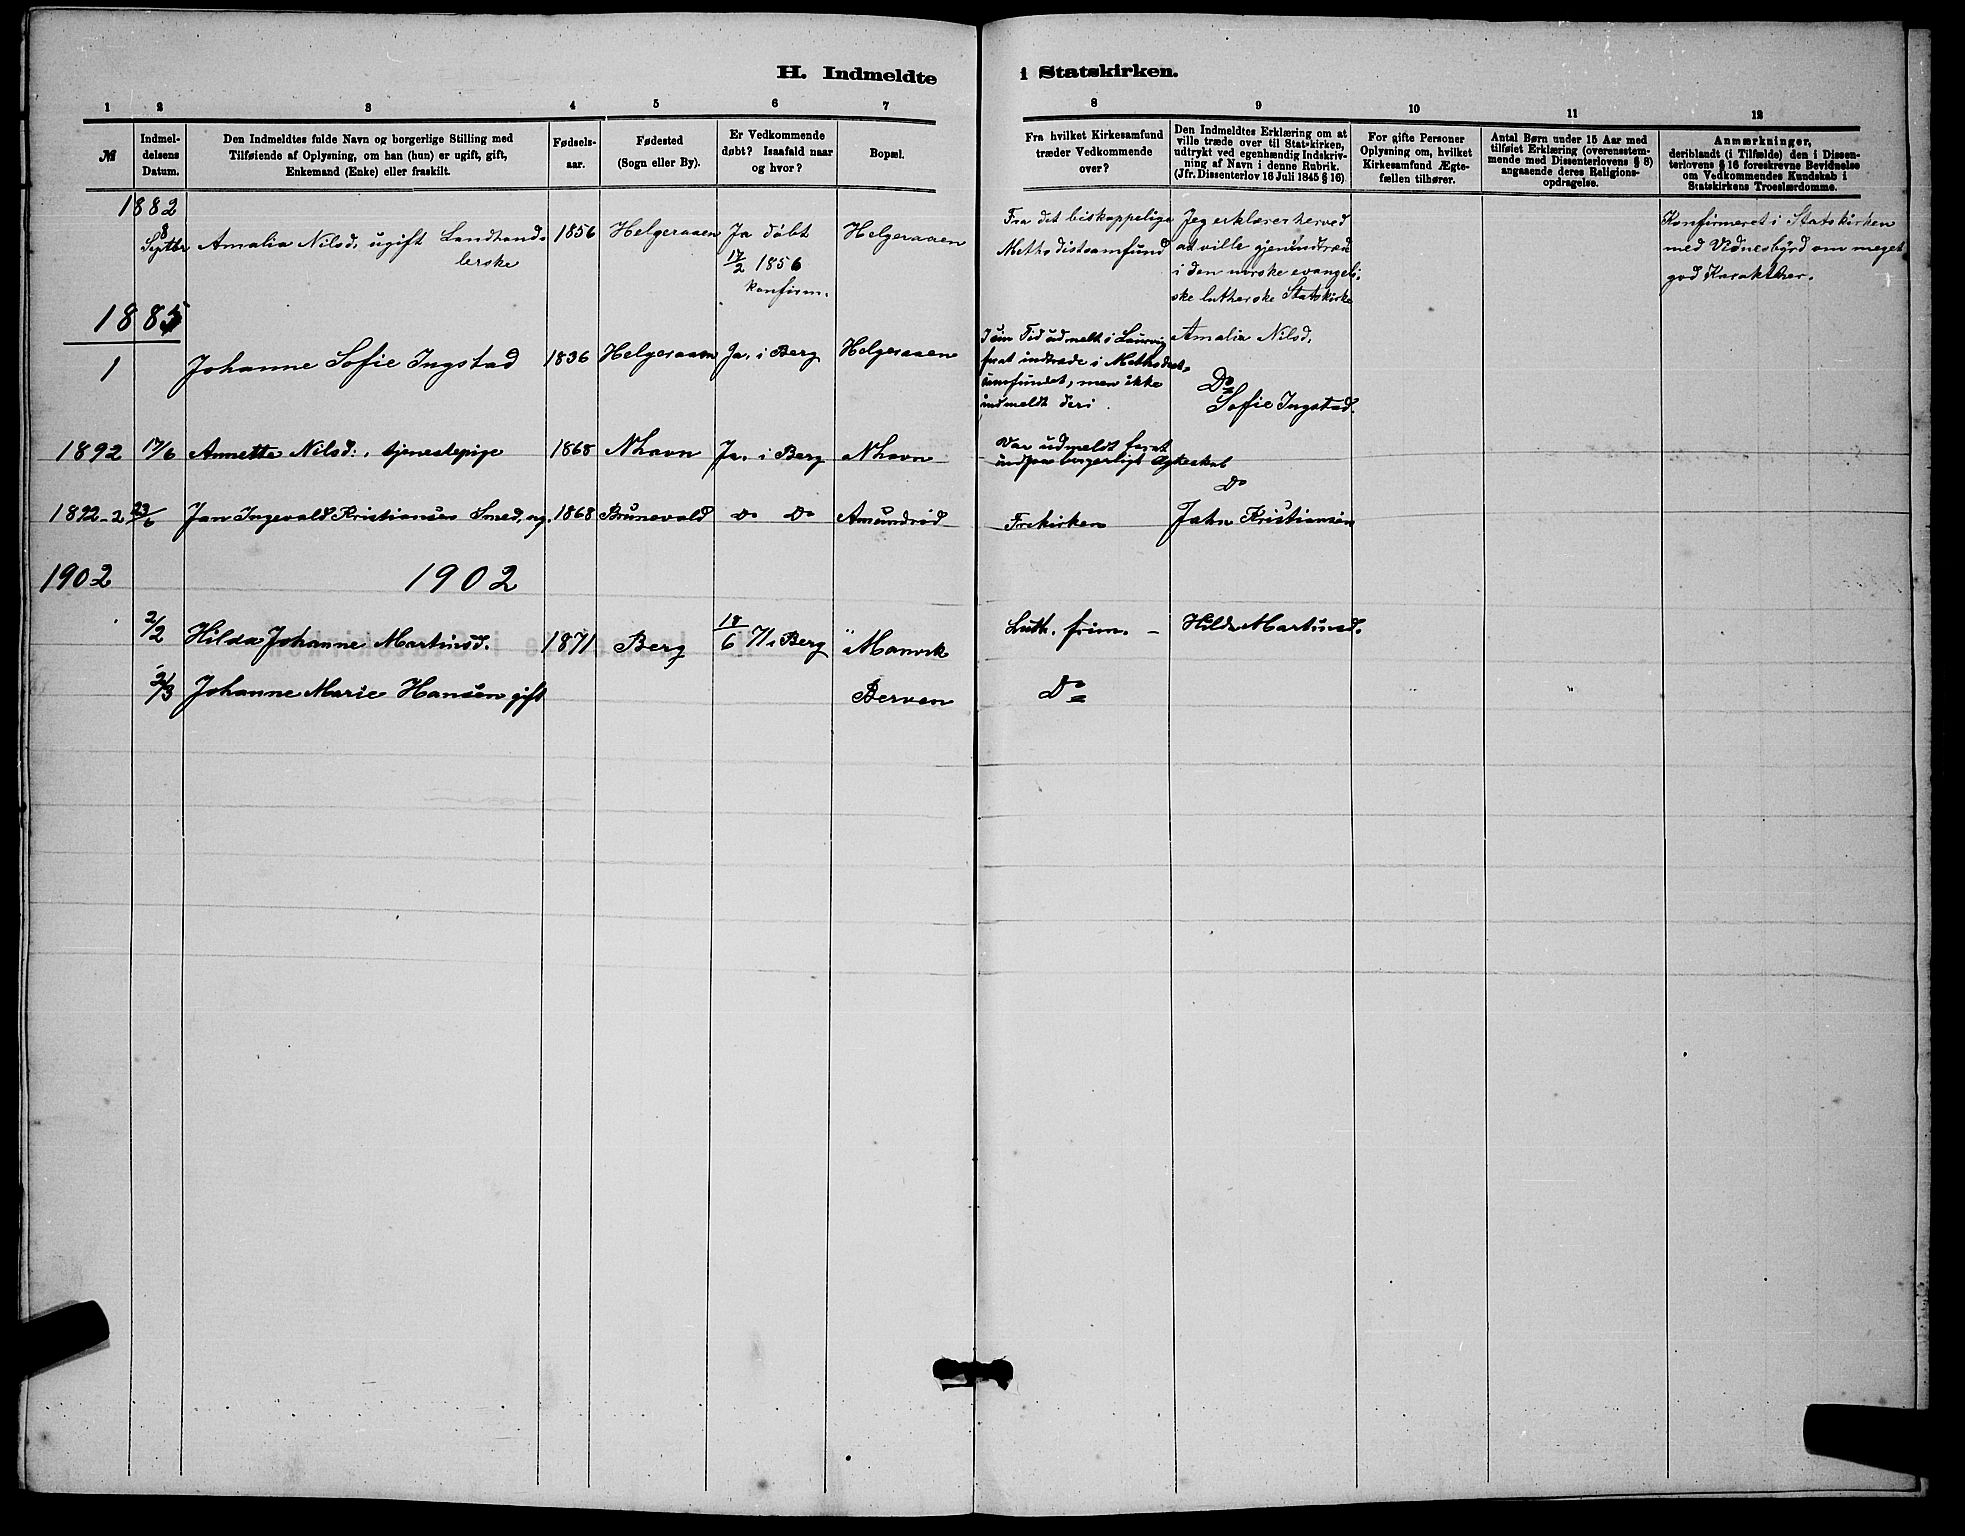 H. Indmeldte i Statskirken.
1 2 3 4 5 6 7 8 9 10 11 12
№
Indmel-
delsens
Datum.
Den Indmeldtes fulde Navn og borgerlige Stilling med
Tilføiende af Oplysning, om han (hun) er ugift, gift,
Enkemand (Enke) eller fraskilt.
Fødsels-
aar.
Fødested
(Sogn eller By).
Er Vedkommende
døbt? Isaafald naar
og hvor?
Bopæl.
Fra hvilket Kirkesamfund
træder Vedkommende
over?
Den Indmeldtes Erklæring om at
ville træde over til Statskirken,
udtrykt ved egenhændig Indskriv-
ning af Navn i denne Rubrik.
(Jfr. Dissenterlov 16 Juli 1845 § 16)
For gifte Personer
Oplysning om, hvilket
Kirkesamfund Ægte-
fællen tilhører.
Antal Børn under 15 Aar med
tilføiet Erklæring (overensstem-
mende med Dissenterlovens § 8)
angaaende deres Religions-
opdragelse.
Anmærkninger,
deriblandt (i Tilfælde) den i Dissen-
terlovens § 16 foreskrevne Bevidnelse
om Vedkommendes Kundskab i
Statskirkens Troeslærdomme.
1882
8
Septbr
Amalia Nilsd, ugift Landhand-
lerske
1856
Helgeraaen
Ja døbt
17/2 1856
konfirm.
Helgeraaen
Fra det biskoppelige
Methodistsamfund
Jeg erklærer herved
at ville gjenindtræde
i den norske evangeli-
ske lutherske Statskirke
Amalia Nilsd.
Konfirmeret i Statskirken
med Vidnesbyrd om meget
god Karakter.
1885
1
Johanne Sofie Ingstad
1836
Helgeraaen
Ja, i Berg
Helgeraaen
I sin Tid udmeldt i Laurvig
forat indtræde i Methodist-
samfundet, men ikke
indmeldt deri.
Do
Sofie Ingstad.
1892 17/6 Annette Nilsd:, tjenestepige 1868 NHavn Ja, i Berg NHavn
Var udmeldt forat
indgaa borgerligt Ægteskab
Do
1892-2 23/6 Jan Ingevald Kristiansen Smed, ug. 1868 Brunevald Do Do Amundrød Frikirken Jahn Kristiansen
1902 1902
2/2 Hilda Johanne Martinsd. 1871 Berg 18/6 71 i Berg Manvik Luth. frim. – Hilda Martinsd.
2/3 Johanne Marie Hansen gift Berven Do